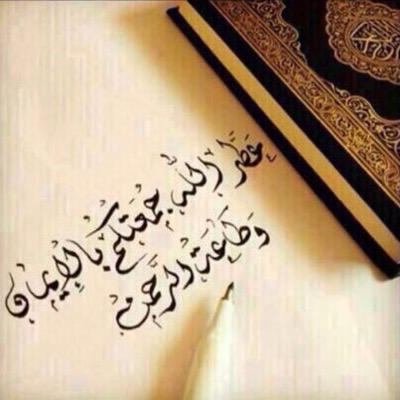 عطر الله جمعتكم بالإيمان
وطاعة الرحمن